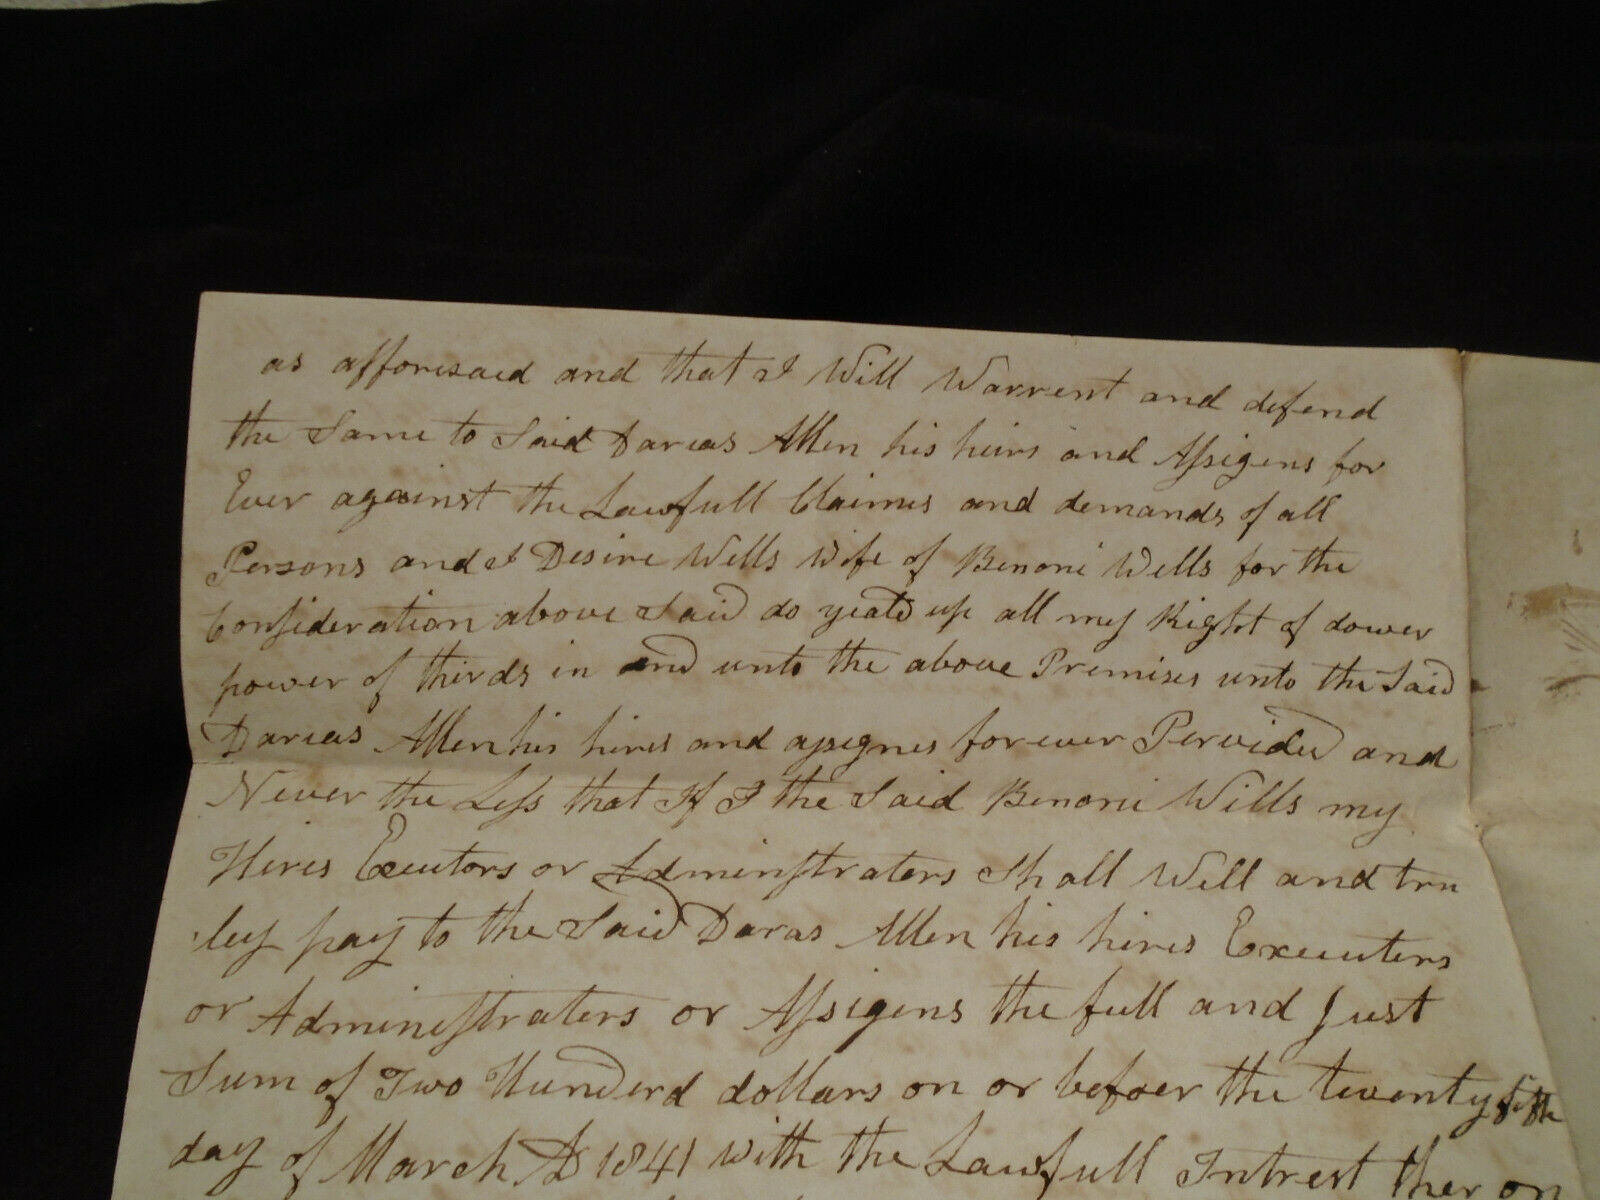 as afforesaed and that I Will Warrent and defend
the Same to Said Dareas Allen his heirs and Assigens for
Ever against the Lawfull Claimes and demands of all
Persons and I Desire Wells Wife of Benoni Wells for the
Consideration above Said do yeald up all my Right of dower
power of thirds in and unto the above Premises unto the Said
Dareas Allen his hires and assignes forever Pervided and
Never the Less that If I the Said Benoni Wells my
Hires Executors or Adminstraters Shall Well and tru
ley pay to the Said Daras Allen his hires Executers
or Administraters or Assigens the full and Just
Sum of Two Hunderd dollars on or befoer the twenty fifth
day of March AD 1841 with the Lawfull Intrest ther on